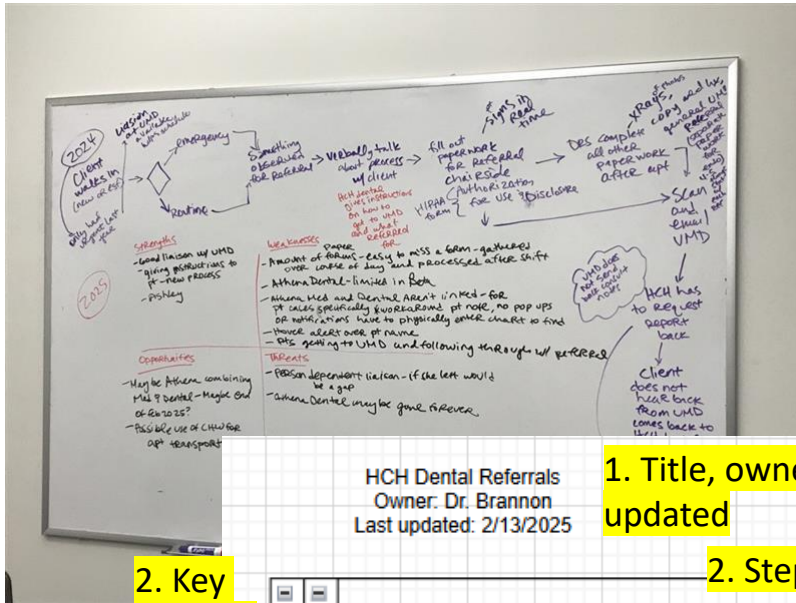 2024
Client
walks in
(new or est)
only had
urgent last
year
liaison
at UMD
available
emergency
Routine
Something
observed
for referral
Verbally talk
about process
w/ client
HCH dental
gives instructions
on how to
get to UMD
and what
referred
for
fill out
paperwork
for referral
chairside
pt
signs in
real
time
HIPAA
form
Authorization
for use & Disclosure
DRS complete
all other
paperwork
after apt
XRays,
copy
general UMD
referral
Scan
and
email
UMD
UMD does
not send
back consult
notes
HCH has
to request
report
back
Client
does not
hear back
from UMD
comes back to
2025
Strengths
- Good liaison w/ UMD
- giving instructions to
pt - new process
Weaknesses
paper
- Amount of forms - easy to miss a form - gathered
over course of day and processed after shift
- Athena Dental - limited in Beta
- Athena Med and Dental Aren't linked - for
pt cases specifically workaround pt note, no pop ups
or notifications have to physically enter chart to find
- Hover alert over pt name
- Pts getting to UMD and following through w/ referral
Opportunities
- Maybe Athena combining
Med & Dental - Maybe end
of Feb 2025?
- Possible use of CHW for
apt transport
Threats
- Person dependent liaison - if she left would
be a gap
- Athena Dental maybe gone forever
HCH Dental Referrals
Owner: Dr. Brannon
Last updated: 2/13/2025
1. Title, owne
updated
2. Key
2. Ste